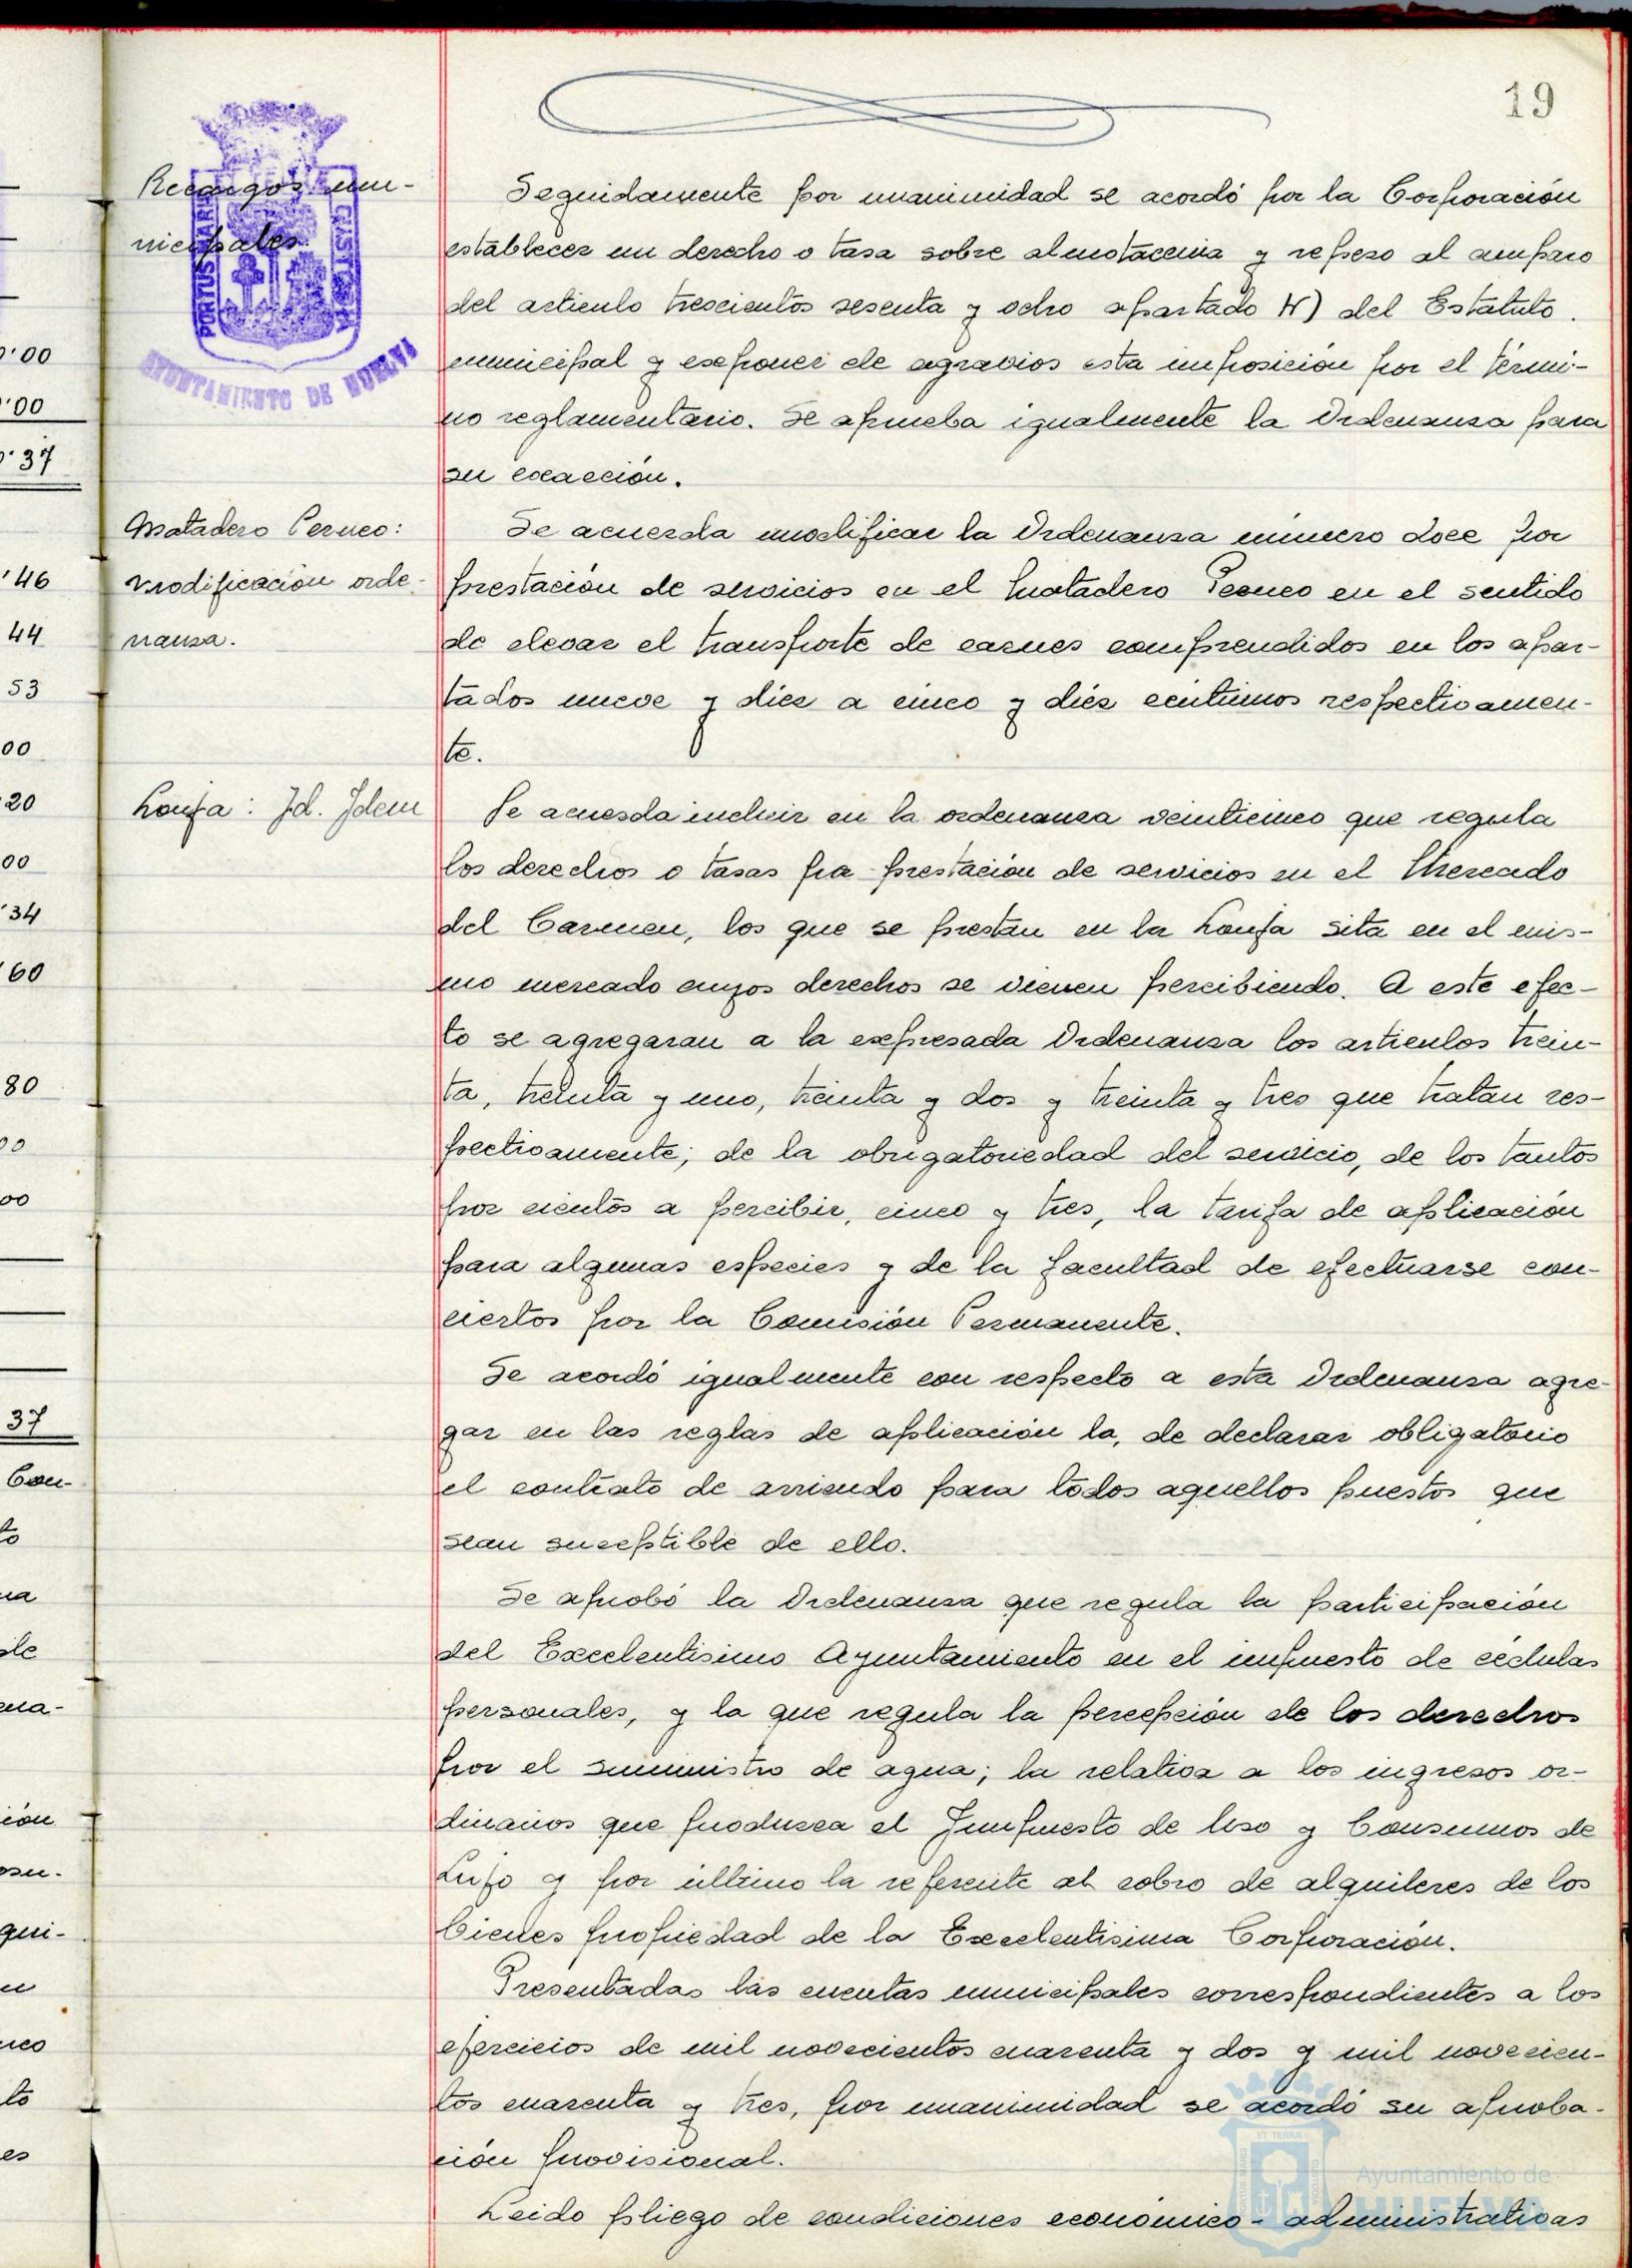 19
Recargos mu-
nicipales.
PORTUS MARIS
ET TERRÆ CUSTODIA
AYUNTAMIENTO DE HUELVA
Seguidamente por unanimidad se acordó por la Corporación
establecer un derecho o tasa sobre almotacenia y repeso al amparo
del articulo trescientos sesenta y ocho apartado H) del Estatuto.
municipal y exponer de agravios esta imposición por el térmi-
no reglamentario. Se aprueba igualmente la Ordenansa para
su exacción.
Matadero Perneo:
modificación orde-
nansa.
Se acuerda modificar la Ordenansa número doce por
prestación de servicios en el Matadero Perneo en el sentido
de elevar el transporte de carnes comprendidos en los apar-
tados nueve y diez a cinco y diéz centimos respectivamen-
te.
Lonja: Id. Idem
Se acuerda incluir en la ordenansa veinticinco que regula
los derechos o tasas pra prestación de servicios en el Mercado
del Carmen, los que se prestan en la Lonja sita en el mis-
mo mercado cuyos derechos se vienen percibiendo. A este efec-
to se agregaran a la expresada Ordenansa los articulos trein-
ta, treinta y uno, treinta y dos y treinta y tres que tratan res-
pectivamente; de la obrigatoriedad del servicio, de los tantos
por cientos a percibir, cinco y tres, la tarifa de aplicación
para algunas especies y de la facultad de efectuarse con-
ciertos por la Comisión Permanente.
Se acordó igualmente con respecto a esta Ordenansa agre-
gar en las reglas de aplicación la, de declarar obligatorio
el contrato de arriendo para todos aquellos puestos que
sean suceptible de ello.
Se aprobó la Ordenansa que regula la participación
del Excelentisimo Ayuntamiento en el impuesto de cédulas
personales, y la que regula la percepción de los derechos
por el suministro de agua; la relativa a los ingresos or-
dinarios que produzca el Impuesto de Uso y Consumos de
Lujo y por último la referente al cobro de alquileres de los
bienes propiedad de la Excelentisima Corporación.
Presentadas las cuentas municipales correspondientes a los
ejercicios de mil novecientos cuarenta y dos y mil novecien-
tos cuarenta y tres, por unanimidad se acordó su aproba-
ción provisional.
Leido pliego de condiciones económico-administrativas
Ayuntamiento de
HUELVA